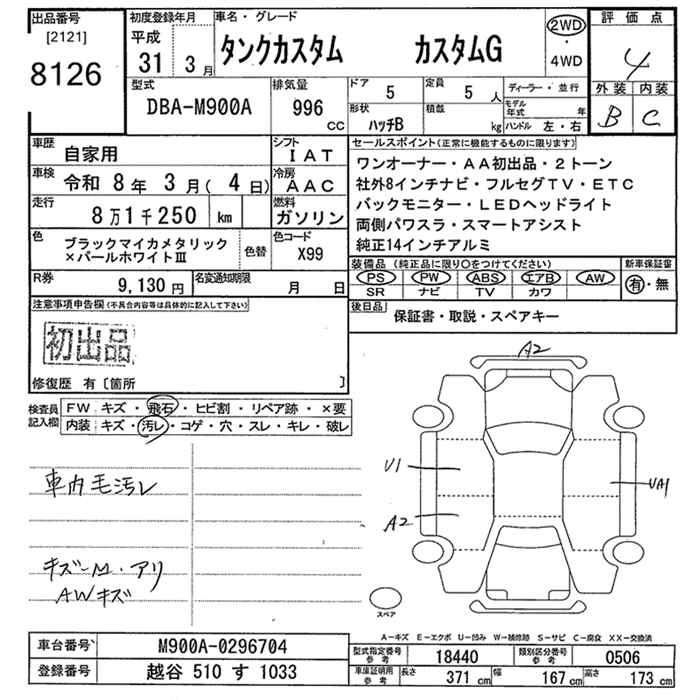 出品番号
[2121]
8126
初度登録年月
平成
31年 3月
車名・グレード
タンクカスタム カスタムG
2WD
・
4WD
評価点
4
外装 内装
B C
型式
DBA-M900A
排気量
996
cc
ドア
5
定員
5人
形状
ハッチB
積載
kg
ディーラー・並行
モデル年式 年
ハンドル 左・右
車歴
自家用
シフト
IAT
車検
令和 8年 3月( 4日)
冷房
AAC
走行
8万1千250 km
燃料
ガソリン
色
ブラックマイカメタリック
×パールホワイトⅢ
色替
色コード
X99
R券
9,130円
名変通知期限
月 日
セールスポイント(正常に機能するものに限ります)
ワンオーナー・AA初出品・2トーン
社外8インチナビ・フルセグTV・ETC
バックモニター・LEDヘッドライト
両側パワスラ・スマートアシスト
純正14インチアルミ
装備品(純正品に限り○をつけてください)
PS PW ABS エアB AW
SR ナビ TV カワ
新車保証書
有・無
後日品
保証書・取説・スペアキー
注意事項申告欄(不具合内容等は具体的に記入して下さい)
初出品
修復歴 有〔箇所 〕
検査員
記入欄
FW キズ・飛石・ヒビ割・リペア跡・×要
内装 キズ・汚レ・コゲ・穴・スレ・キレ・破レ
車内毛汚レ
キズ-M・アリ
AWキズ
A2
U1
A2
UA1
スペア
A−キズ E−エクボ U−凹み W−補修跡 S−サビ C−腐食 XX−交換済
車台番号
M900A-0296704
登録番号
越谷 510 す 1033
型式指定番号
参考
18440
類別区分番号
参考
0506
車庫証明用
参考
長さ 371cm 幅 167cm 高さ 173cm